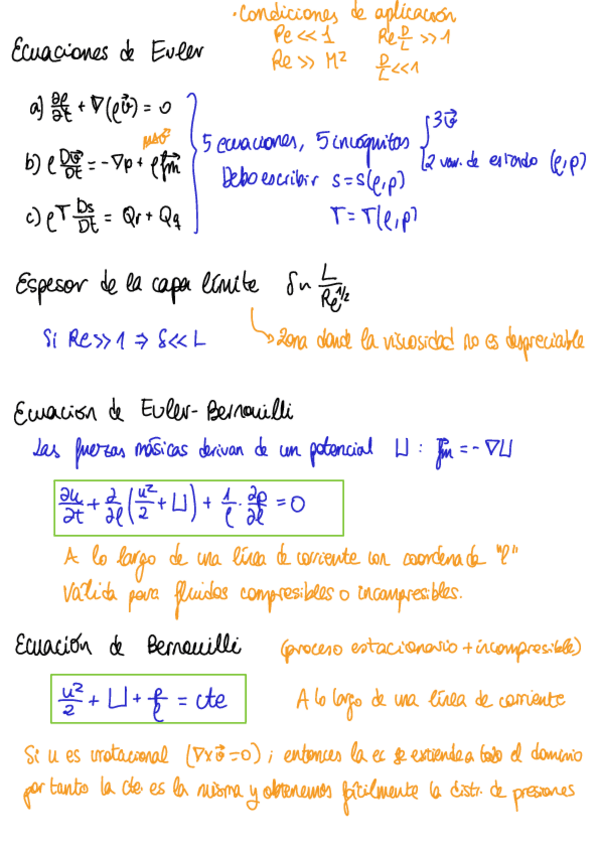 · Condiciones de aplicación
Pe << 1 Re D/L >> 1
Re >> M² D/L << 1
Ecuaciones de Euler
a) ∂ρ/∂t + ∇(ρv⃗) = 0
b) ρ Dv⃗/Dt = -∇p + ρf⃗m
c) ρT Ds/Dt = Qr + Qq
5 ecuaciones, 5 incógnitas { 3 v⃗
2 var. de estado (ρ,p)
Debo escribir s = s(ρ,p)
T = T(ρ,p)
Espesor de la capa límite δ ~ L/Re^1/2
Si Re >> 1 ⇒ δ << L
Zona donde la viscosidad no es despreciable
Ecuación de Euler-Bernouilli
Las fuerzas másicas derivan de un potencial U : f⃗m = -∇U
∂u/∂t + ∂/∂l (u²/2 + U) + 1/ρ · ∂p/∂l = 0
A lo largo de una línea de corriente con coordenada "l"
Válida para fluidos compresibles o incompresibles.
Ecuación de Bernouilli (proceso estacionario + incompresible)
u²/2 + U + p/ρ = cte
A lo largo de una línea de corriente
Si u es irrotacional (∇×v⃗=0) ; entonces la ec se extiende a todo el dominio
por tanto la cte. es la misma y obtenemos fácilmente la distr. de presiones